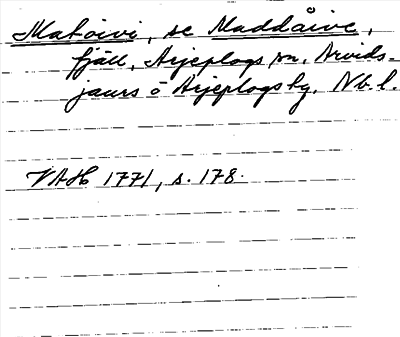 Matoivi, se Maddåive,
fjäll, Arjeplogs sn, Arvids-
jaurs o Arjeplogs tg. Nb.l.
VAH 1771, s. 178.